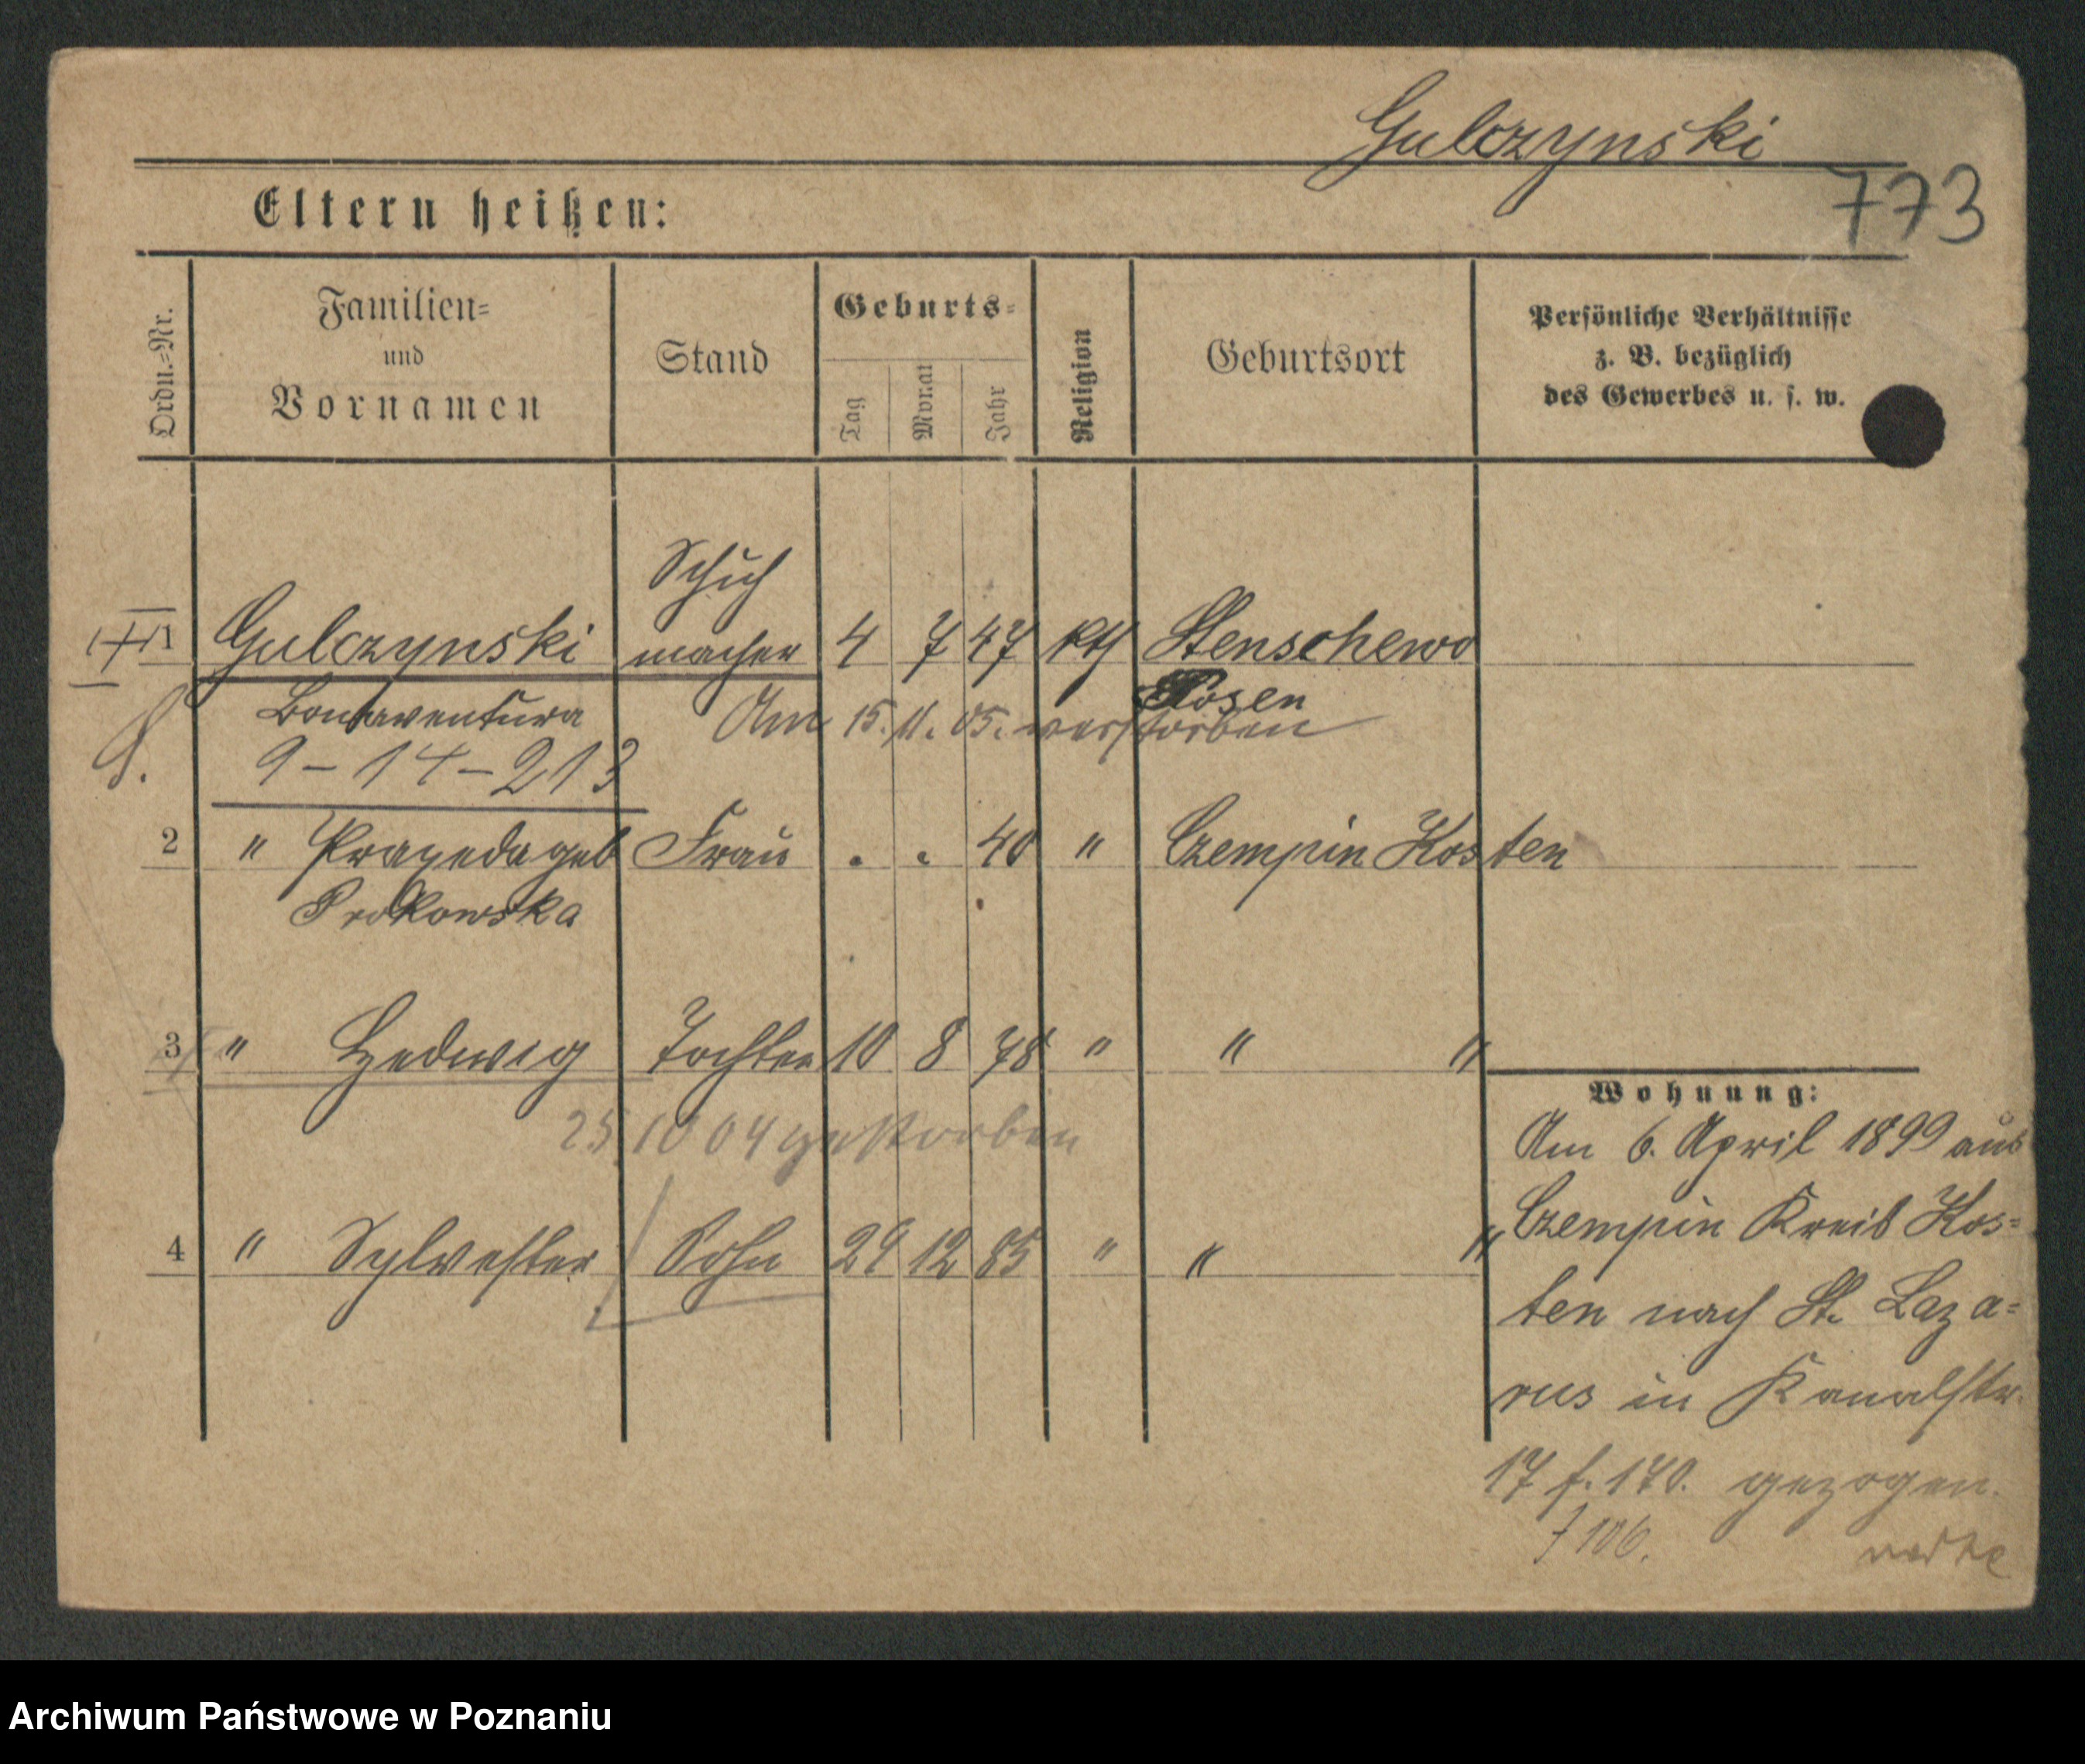 Gulczynski
773
Eltern heißen:
Ordn.=Nr.
Familien=
und
Vornamen
Stand
Geburts=
Tag
Monat
Jahr
Religion
Geburtsort
Persönliche Verhältnisse
z. B. bezüglich
des Gewerbes u. s. w.
Schuh
1 Gulczynski macher 4 7 47 kth Stenschewo
Posen
Bonaventura Am 15. 11. 05. verstorben
9-14-213
2 " Praxeda geb Frau . . 40 " Czempin Kosten
Prokowska
3 " Hedwig Tochter 10 8 78 " " "
Wohnung:
25 10 04 gestorben
Am 6. April 1899 aus
Czempin Kreis Kos=
4 " Sylvester Sohn 29 12 85 " " "
ten nach St. Laza=
rus in Kanalstr.
17 f. 170. gezogen.
106.